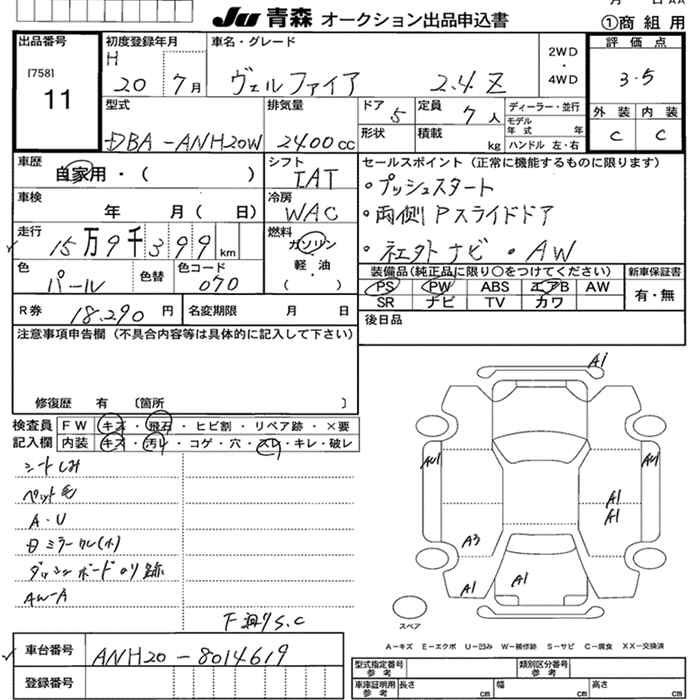 JU 青森 オークション出品申込書
月 日 AA
①商組用
出品番号
[758]
11
初度登録年月
H
20 7月
車名・グレード
ヴェルファイア 2.4 Z
2WD
・
4WD
評価点
3.5
外装 内装
C C
型式
DBA-ANH20W
排気量
2400cc
ドア 5
定員 7人
ディーラー・並行
モデル
年式 年
形状
積載 kg
ハンドル 左・右
車歴
自家用・( )
シフト
IAT
セールスポイント(正常に機能するものに限ります)
・プッシュスタート
・両側Pスライドドア
・社外ナビ ・AW
車検
年 月( 日)
冷房
WAC
走行
15万9千399km
燃料
ガソリン
・
軽・油
( )
色
パール
色替
色コード
070
装備品(純正品に限り○をつけてください)
新車保証書
PS PW ABS エアB AW
SR ナビ TV カワ
有・無
R券
18,290円
名変期限 月 日
後日品
注意事項申告欄(不具合内容等は具体的に記入して下さい)
修復歴 有 〔箇所 〕
検査員
記入欄
FW キズ・飛石・ヒビ割・リペア跡・×要
内装 キズ・汚レ・コゲ・穴・スレ・キレ・破レ
シートしみ
ペット毛
A・U
ダッシュボードのり跡
AW-A
A1
AU1
AU1
A1
A1
A3
A1
A1
スペア
A-キズ E-エクボ U-凹み W-補修跡 S-サビ C-腐食 XX-交換済
車台番号
ANH20-8014619
登録番号
型式指定番号
参考
類別区分番号
参考
車庫証明用
参考
長さ cm
幅 cm
高さ cm